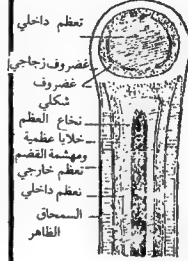 تعظم داخلي
غضروف زجاجي
غضروف
شكلي
نخاع العظم
خلايا عظمية
ومهشمة القضم
تعظم خارجي
تعظم داخلي
السمحاق
الظاهر